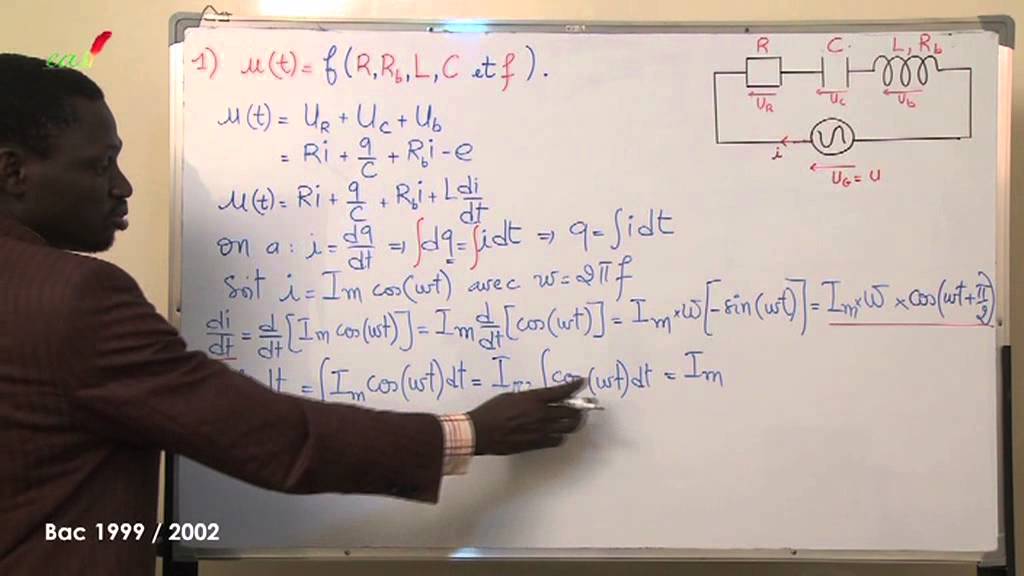 1) u(t) = f(R, R_b, L, C et f).
u(t) = U_R + U_C + U_b
= Ri + q/C + R_b i - e
u(t) = Ri + q/C + R_b i + L di/dt
on a : i = dq/dt ⇒ ∫dq = ∫idt ⇒ q = ∫idt
Soit i = Im cos(ωt) avec ω = 2πf
di/dt = d/dt [Im cos(ωt)] = Im d/dt [cos(ωt)] = Im × ω [-sin(ωt)] = Im × ω × cos(ωt + π/2)
dt = ∫Im cos(ωt)dt = Im ∫cos(ωt)dt = Im
R C L, R_b
U_R U_C U_b
i
U_G = U
Bac 1999 / 2002